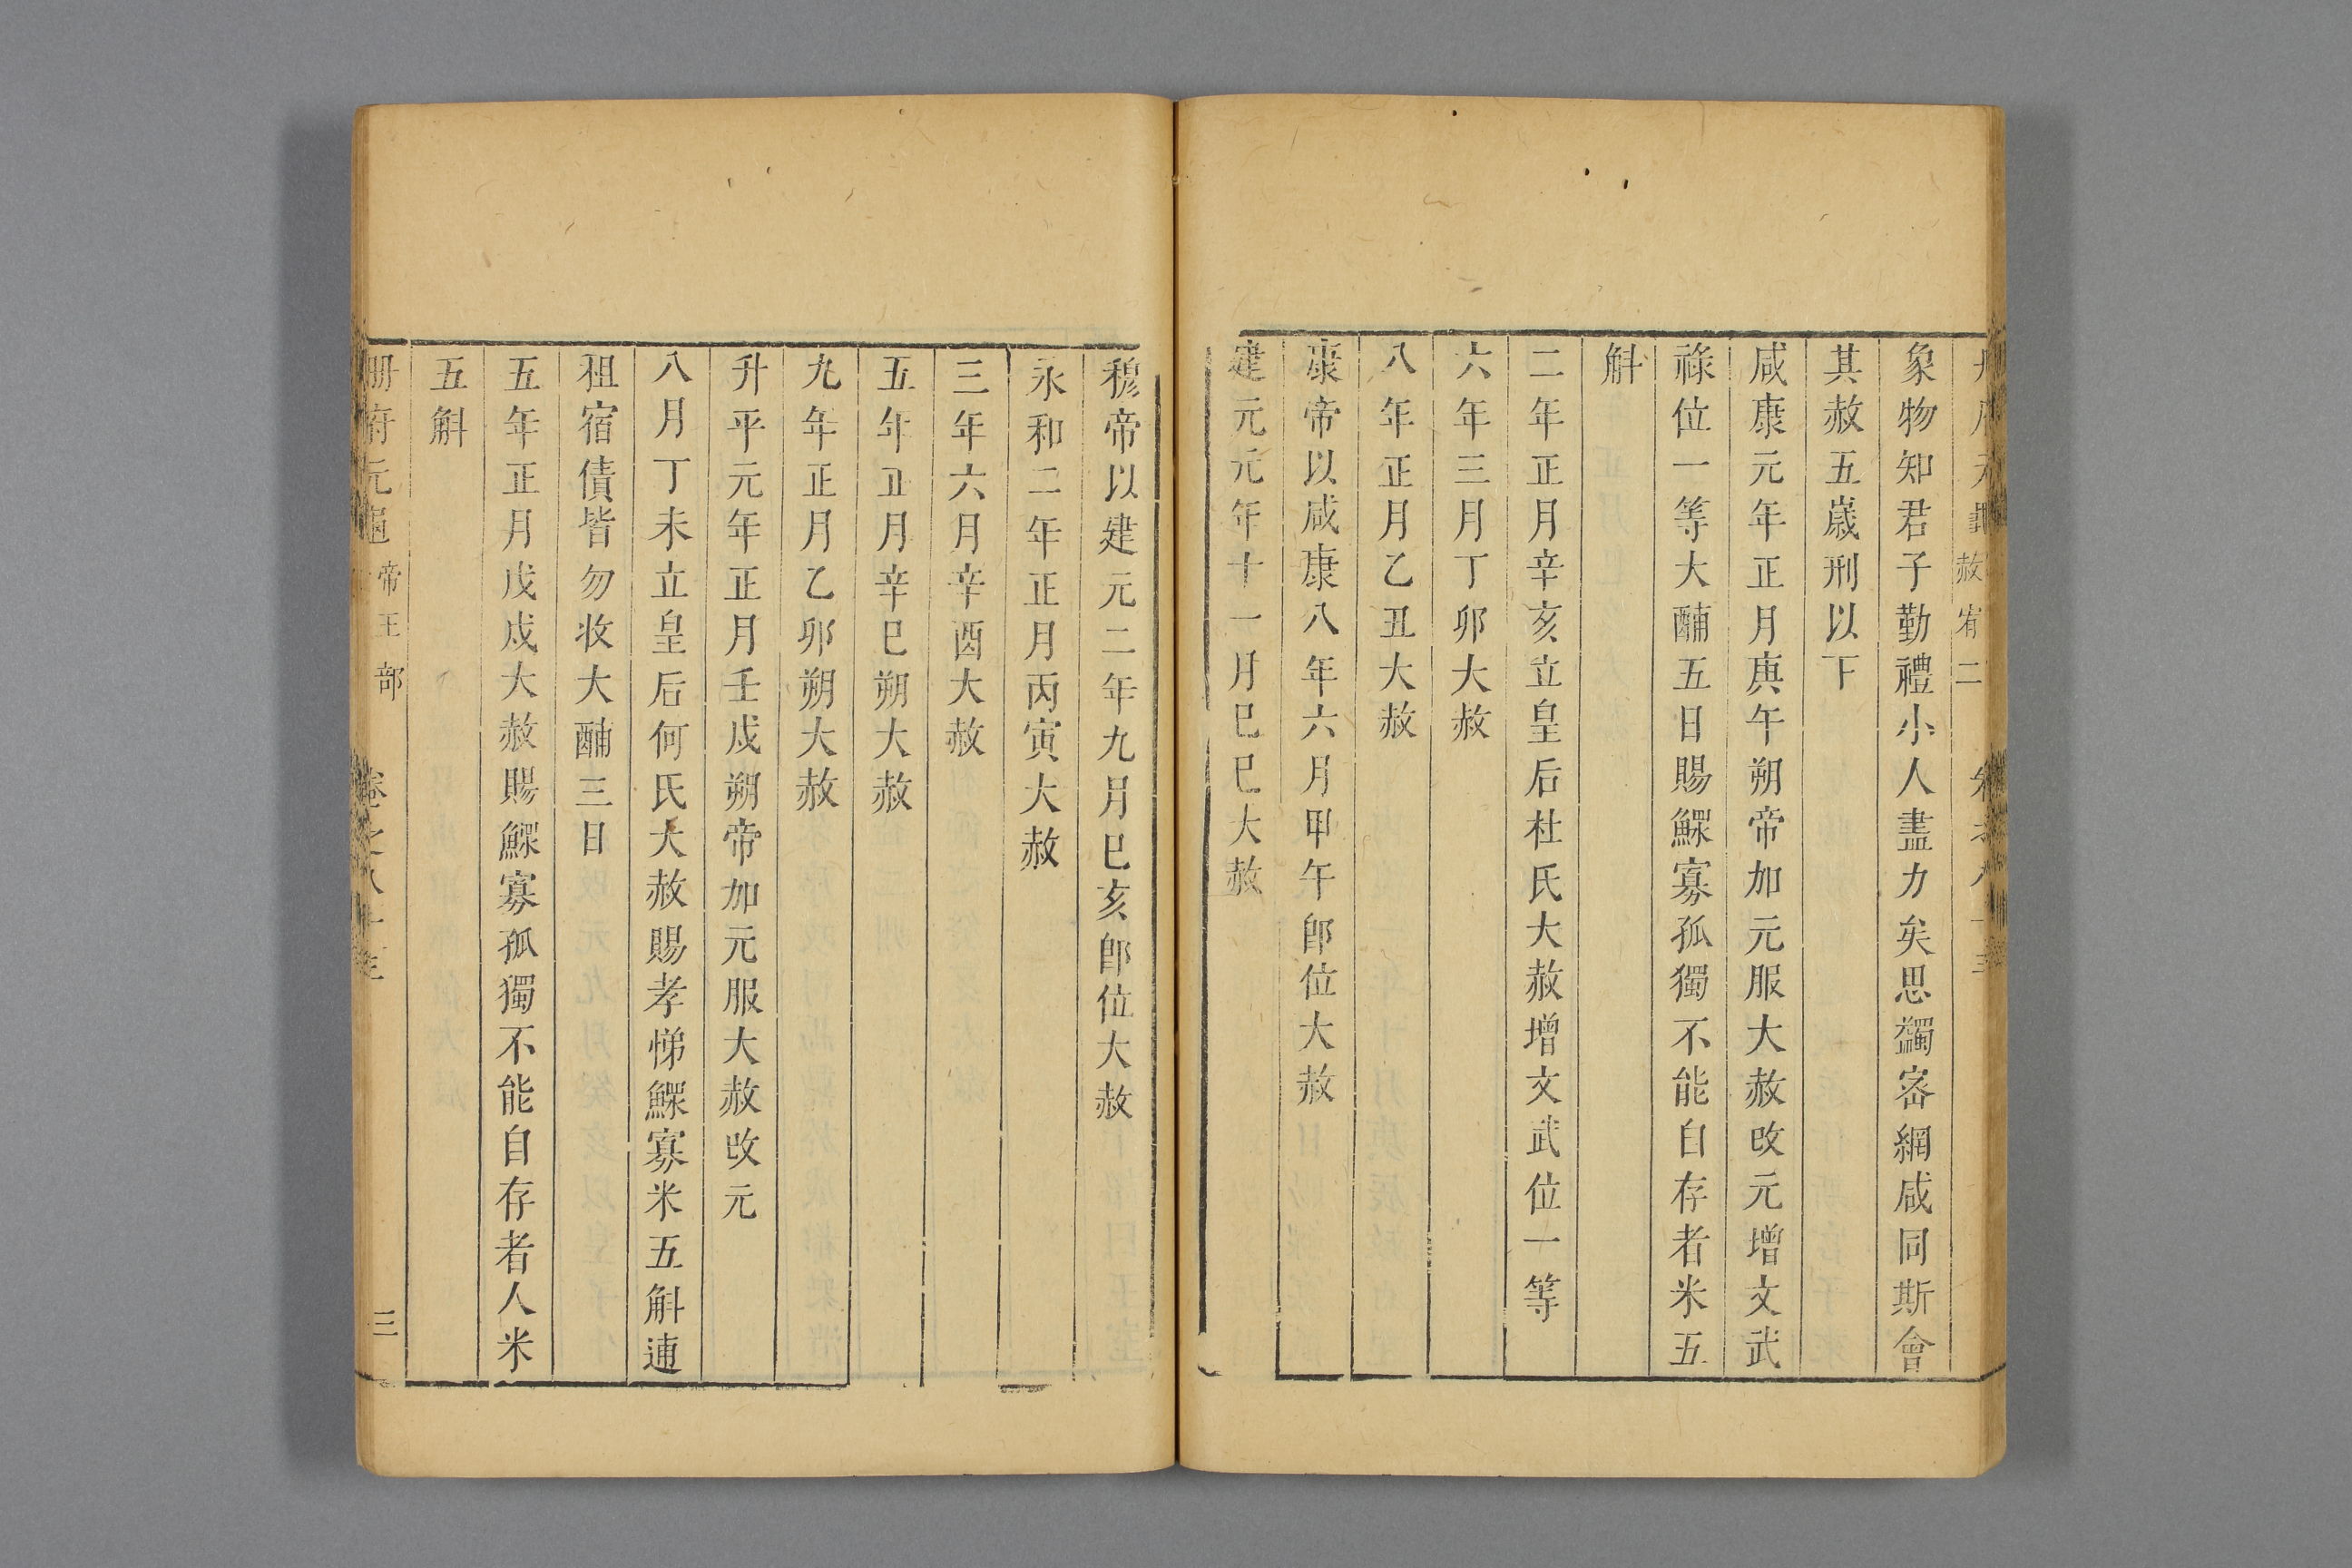 赦宥二
象物知君子勤禮小人盡力矣思蠲宻網咸同斯會
其赦五歲刑以下
咸康元年正月庚午朔帝加元服大赦改元增文武
祿位一等大酺五日賜鰥寡孤獨不能自存者米五
斛
二年正月辛亥立皇后杜氏大赦增文武位一等
六年三月丁卯大赦
八年正月乙丑大赦
康帝以咸康八年六月甲午卽位大赦
建元元年十一月巳巳大赦
穆帝以建元二年九月巳亥卽位大赦
永和二年正月丙寅大赦
三年六月辛酉大赦
五年正月辛巳朔大赦
九年正月乙卯朔大赦
升平元年正月壬戍朔帝加元服大赦改元
八月丁未立皇后何氏大赦賜孝悌鰥寡米五斛逋
租宿債皆勿收大酺三日
五年正月戊戍大赦賜鰥寡孤獨不能自存者人米
五斛
册府元龜 帝王部 卷之八十三 三